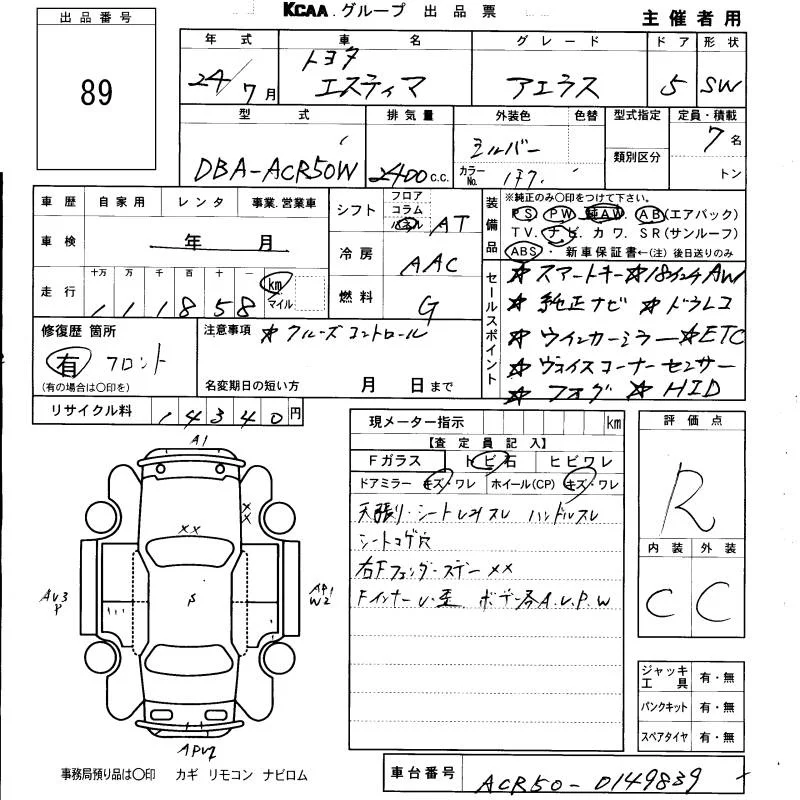 KCAA.グループ 出品票
主催者用
出品番号
89
年式 車名 グレード ドア 形状
24/7月 トヨタ エスティマ アエラス 5 SW
型式 排気量 外装色 色替 型式指定 定員・積載
DBA-ACR50W 2400c.c. シルバー 7名
カラーNo. 1F7 類別区分 トン
車歴 自家用 レンタ 事業.営業車
車検 年 月
走行 十万 万 千 百 十 一
111858 km マイル
シフト フロア コラム パネル AT
冷房 AAC
燃料 G
装備品
※純正のみ○印をつけて下さい。
PS PW 純AW AB(エアバック)
TV. ナビ. カワ. SR(サンルーフ)
ABS・新車保証書←(注)後日送りのみ
セールスポイント
☆スマートキー☆18インチAW
☆純正ナビ ☆ドラレコ
☆ウインカーミラー☆ETC
☆ヴォイスコーナーセンサー
☆フォグ ☆HID
修復歴 箇所
有 フロント
(有の場合は○印を)
注意事項 ☆クルーズコントロール
名変期日の短い方 月 日まで
リサイクル料 14340円
現メーター指示 km
【査定員記入】
Fガラス トビ石 ヒビワレ
ドアミラー キズ・ワレ ホイール(CP) キズ・ワレ
天張り・シートヨゴレスレ ハンドルスレ
シートコゲ穴
右Fフェンダーステー××
FインナーU・歪 ボデー各A.U.P.W
評価点
R
内装 外装
C C
ジャッキ工具 有・無
パンクキット 有・無
スペアタイヤ 有・無
A1
××
×
×
AU3
P
S
AP1
W2
APU2
事務局預り品は○印 カギ リモコン ナビロム
車台番号 ACR50-0149839